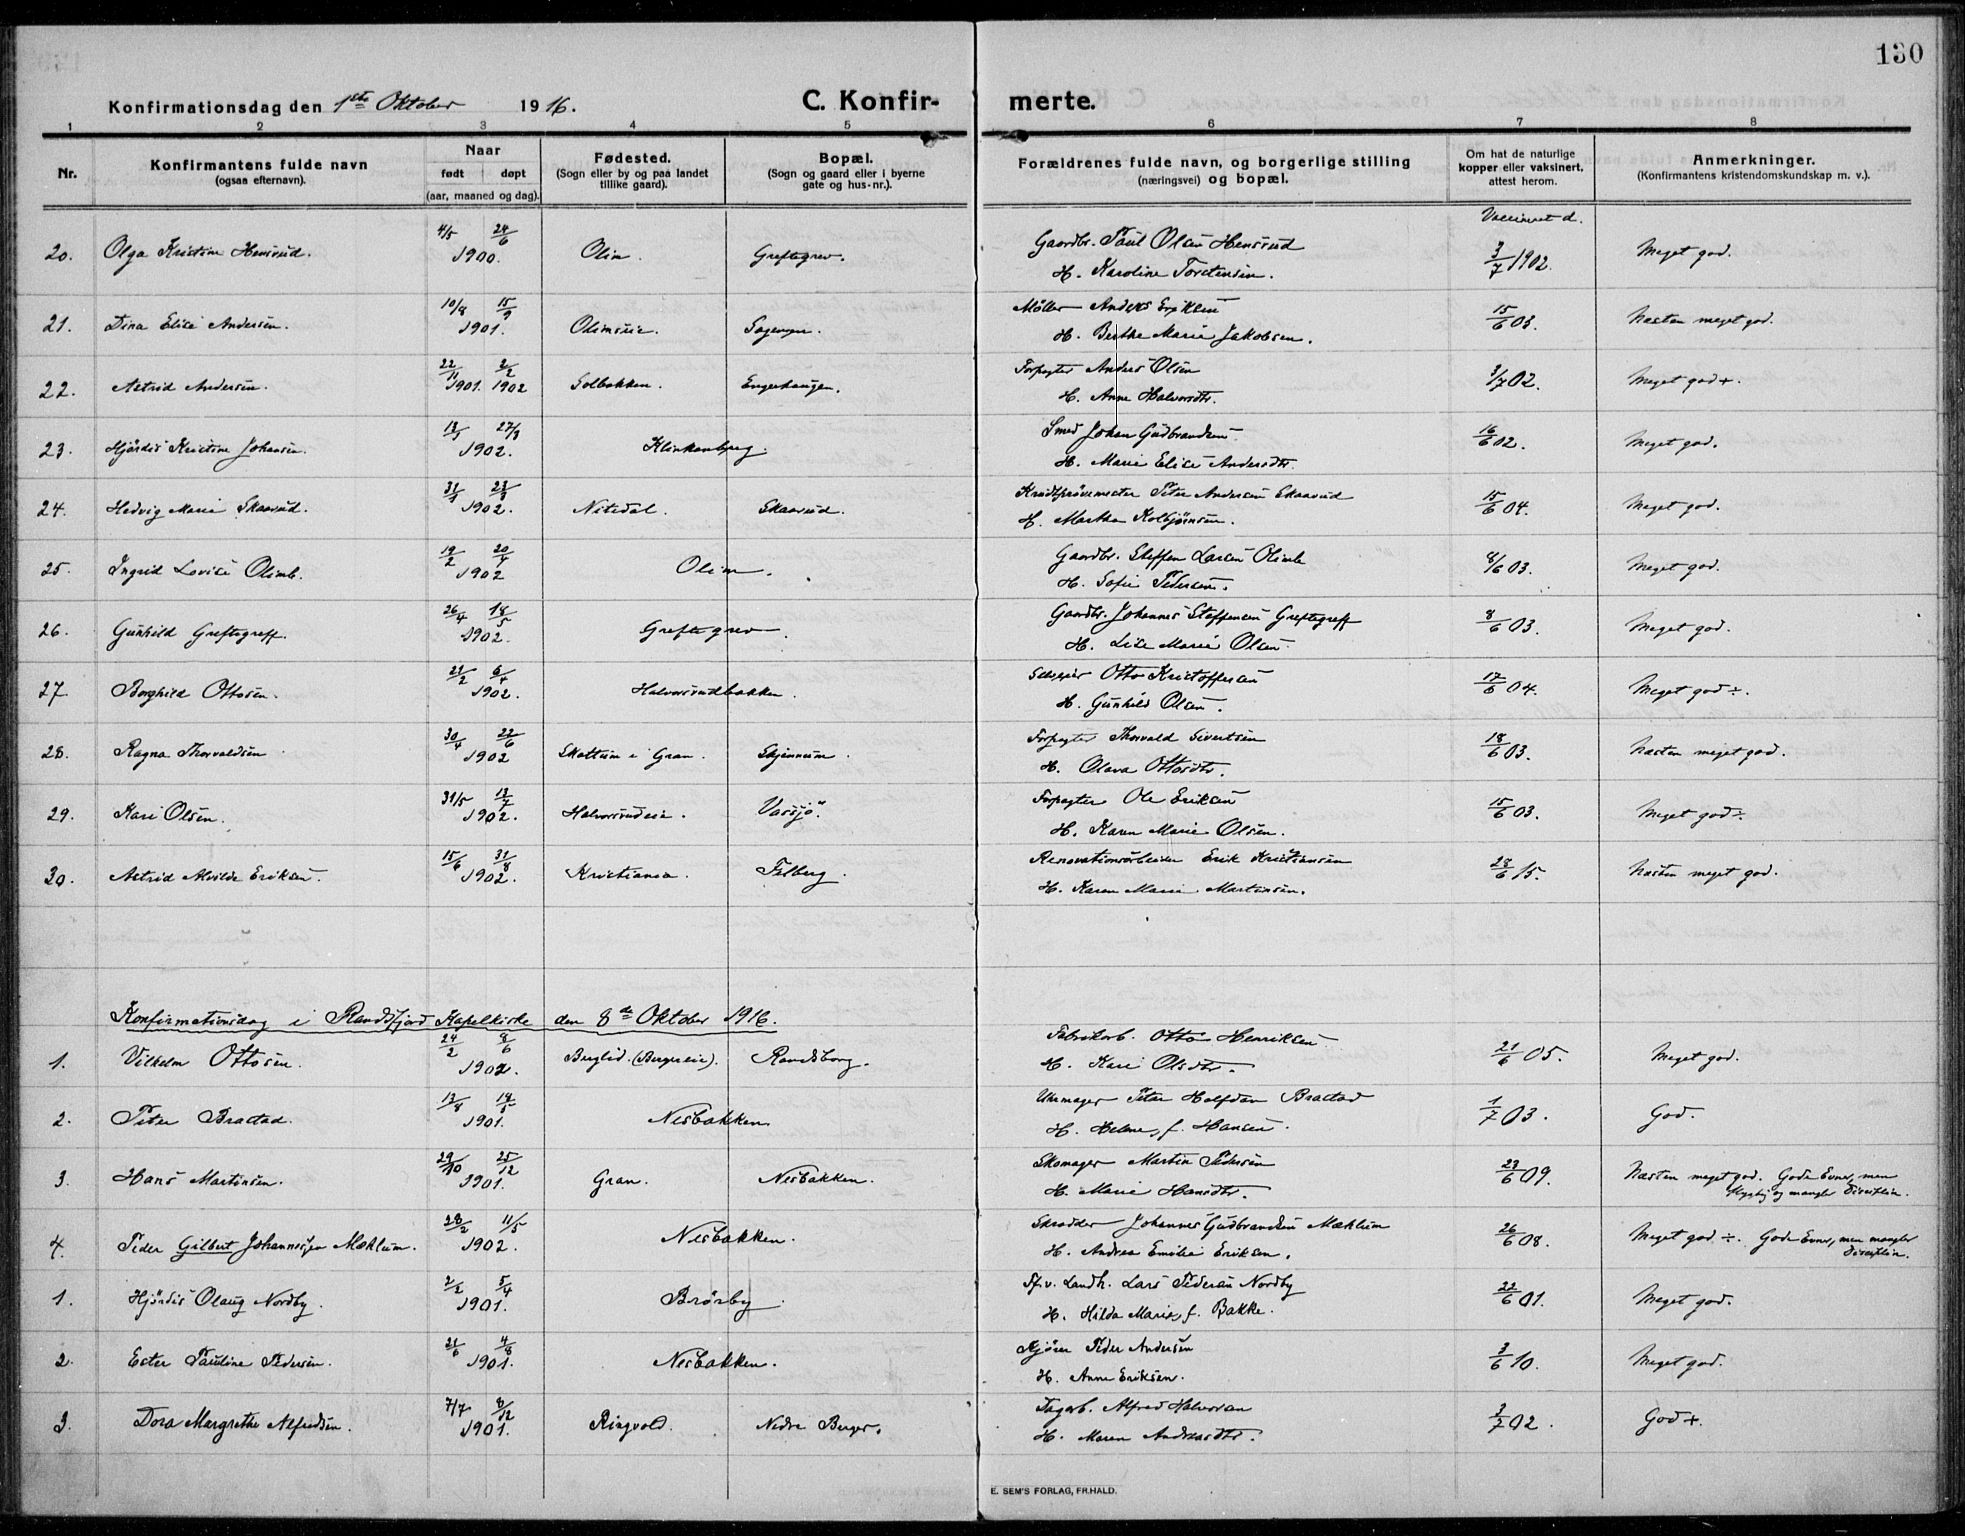 130
Konfirmationsdag den 1ste Oktober 1916.
C. Konfirmerte.
1 2 3 4 5 6 7 8
Nr.
Konfirmantens fulde navn
(ogsaa efternavn).
Naar
født døpt
(aar, maaned og dag).
Fødested.
(Sogn eller by og paa landet
tillike gaard).
Bopæl.
(Sogn og gaard eller i byerne
gate og hus-nr.).
Forældrenes fulde navn, og borgerlige stilling
(næringsvei) og bopæl.
Om hat de naturlige
kopper eller vaksinert,
attest herom.
Anmerkninger.
(Konfirmantens kristendomskundskap m. v.).
20. Olga Kristine Hensrud. 4/5 24/6 1900. Olim. Greftegrev. Gaardbr. Paul Olsen Hensrud Vaccineret d. 3/7 1902. Meget god.
H. Karoline Torstensen.
21. Dina Elise Andersen. 10/8 15/9 1901. Olimseie. Sagengen. Møller Anders Eriksen 15/6 03. Næsten meget god.
H. Berthe Marie Jakobsen.
22. Astrid Andersen. 22/11 1901. 2/2 1902 Solbakken. Engerhaugen. Forpagter Anders Olsen 3/7 02. Meget god+.
H. Anne Halvorsdtr.
23. Hjørdis Kristine Johansen. 13/1 27/3 1902. Klinkenberg. Smed Johan Gudbrandsen 16/6 02. Meget god.
H. Marie Elise Andersdtr.
24. Hedvig Marie Skaarud. 31/1 23/3 1902. Nitedal. Skaarud. Krudtprøvemester Peter Andersen Skaarud 15/6 04. Meget god.
H. Marthe Kolbjørnsen.
25. Ingrid Lovise Olimb. 19/2 20/4 1902 Olim. Gaardbr. Steffen Larsen Olimb 8/6 03. Meget god.
H. Sofie Pedersen.
26. Gunhild Greftegreff. 26/4 18/5 1902. Greftegrev. Gaardbr. Johannes Steffensen Greftegreff 8/6 03. Meget god.
H. Lise Marie Olsen.
27. Borghild Ottosen. 21/2 6/4 1902. Halvorsrudbakken. Selveier Otto Kristoffersen 17/6 04. Meget god÷.
H. Gunhild Olsen.
28. Ragna Thorvaldsen 30/4 22/6 1902 Skattum i Gran. Skjennum. Forpagter Thorvald Sivertsen 18/6 03. Næsten meget god.
H. Olava Ottosdtr.
29. Kari Olsen. 31/5 13/7 1902. Halvorsrudeie. Vassjø. Forpagter Ole Eriksen 15/6 03. Meget god÷.
H. Karen Marie Olsen.
30. Astrid Alvilde Eriksen. 15/6 31/8 1902. Kristiania. Felberg. Renovationsarbeider Erik Kristiansen 28/6 15. Næsten meget god.
H. Karen Marie Martinsen.
Konfirmationsdag i Randsfjord Kapelkirke den 8de Oktober 1916.
1. Vilhelm Ottosen. 24/2 8/6 1902. Berglid. (Bergereie). Randsborg. Fabrikarb. Otto Henriksen 21/6 05. Meget god.
H. Kari Olsdtr.
2. Peter Brastad. 13/8 1901. Nesbakken. Uhrmager Peter Halfdan Brastad 1/7 03. God.
H. Helene, f. Hansen.
3. Hans Martinsen. 29/10 25/12 1901. Gran. Nesbakken. Skomager Martin Pedersen 23/6 09. Næsten meget god. Gode Evner, men
H. Marie Hansdtr. og mangler Disciplin.
4. Peder Gilbert Johannessen Mæhlum. 28/2 11/5 1902. Nesbakken. Skrædder Johannes Gudbrandsen Mæhlum 26/6 08. Meget god ÷. Gode Evner, men mangler
H. Andrea Emilie Eriksen. Disciplin.
1. Hjørdis Olaug Nordby. 2/2 5/4 1901. Brørby. Landh. Lars Pedersen Nordby 22/6 01. Meget god.
H. Hilda Marie, f. Bakke.
2. Ester Pauline Pedersen. 21/6 4/8 1901. Nesbakken. Kjører Peder Andersen 3/6 10. Meget god.
H. Anne Eriksen.
3. Dora Margrethe Alfredsen. 7/7 8/12 1901. Ringvold. Nedre Berger. Dagarb. Alfred Halvorsen 3/7 02. God+.
H. Maren Andreasdtr.
E. SEM'S FORLAG, FR.HALD.